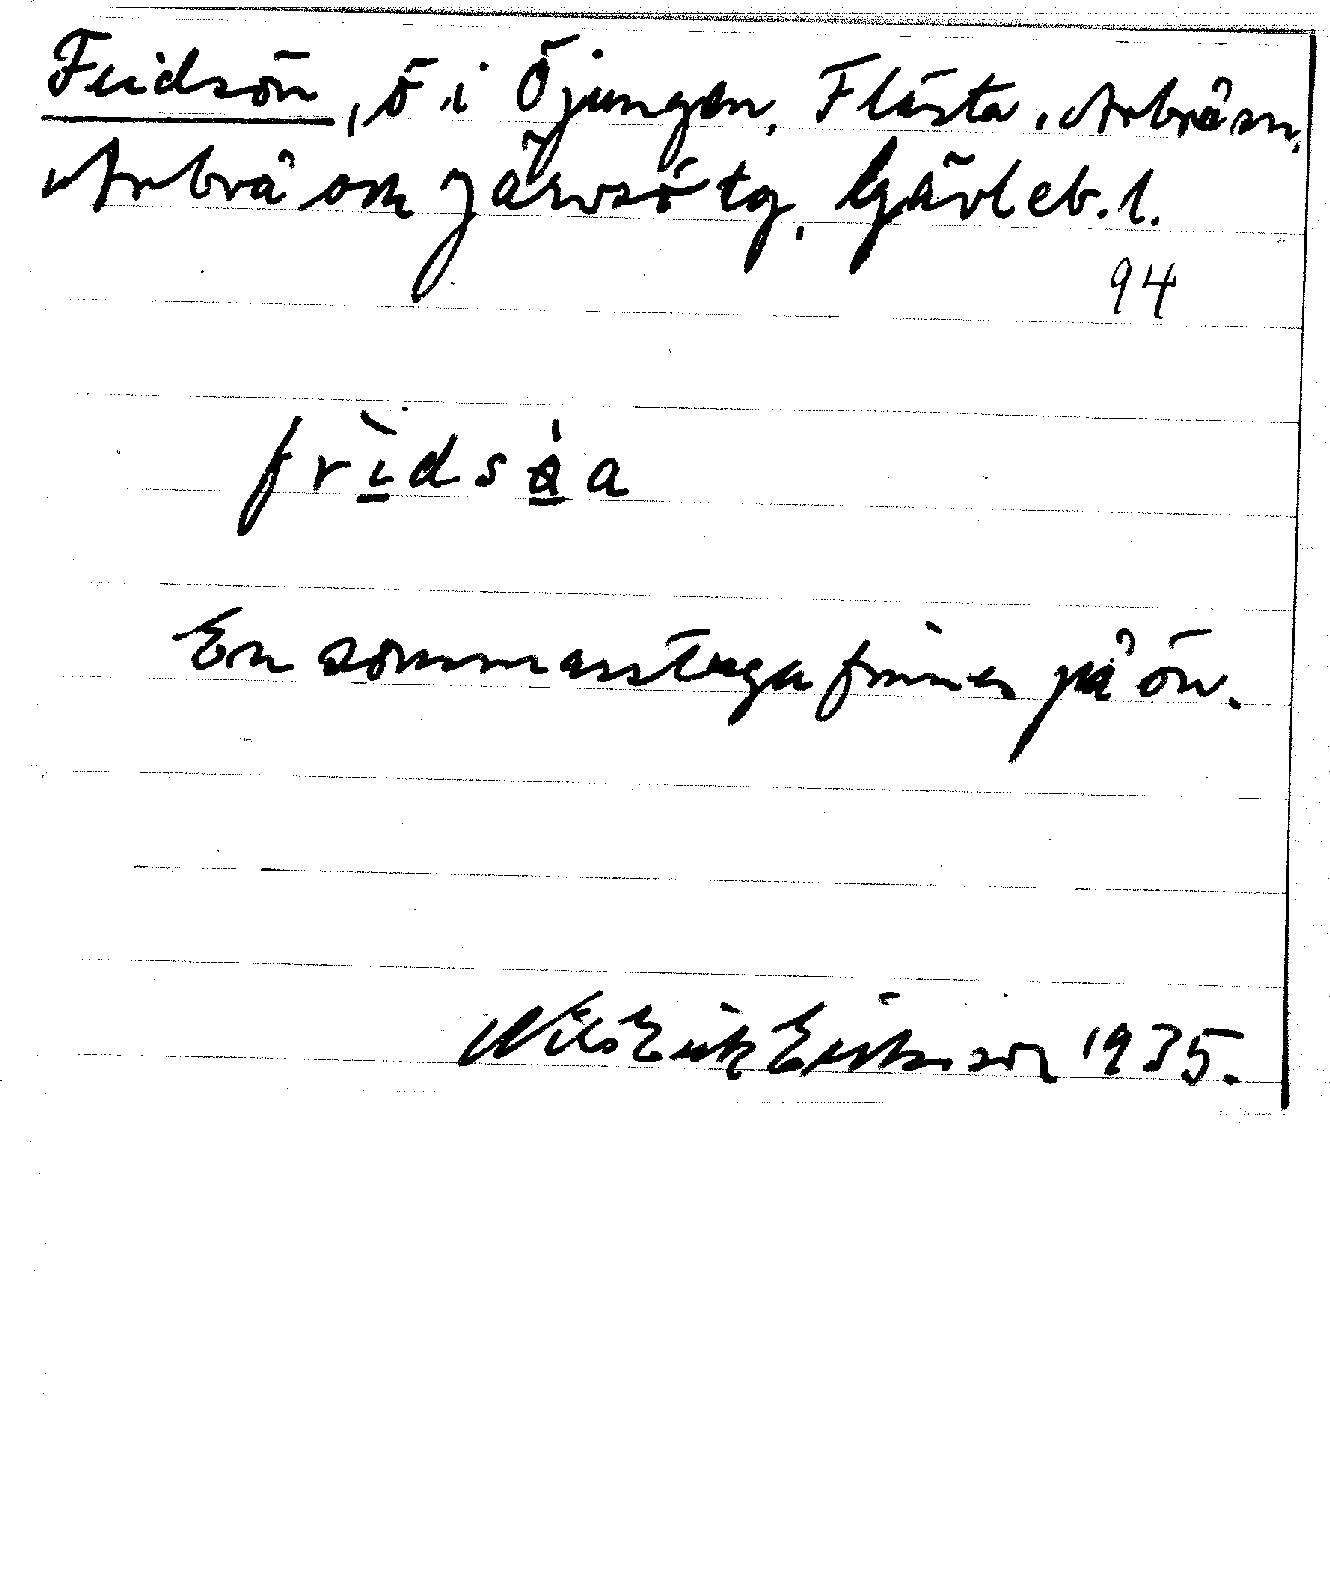 Fridsön, ö i Öjungen, Flästa, Arbrå sn,
Arbrå om Järvsö tg, Gävleb. l.
94
frìdsȧa
En sommarstuga finnes på ön.
Nils Erik Eriksson 1935.